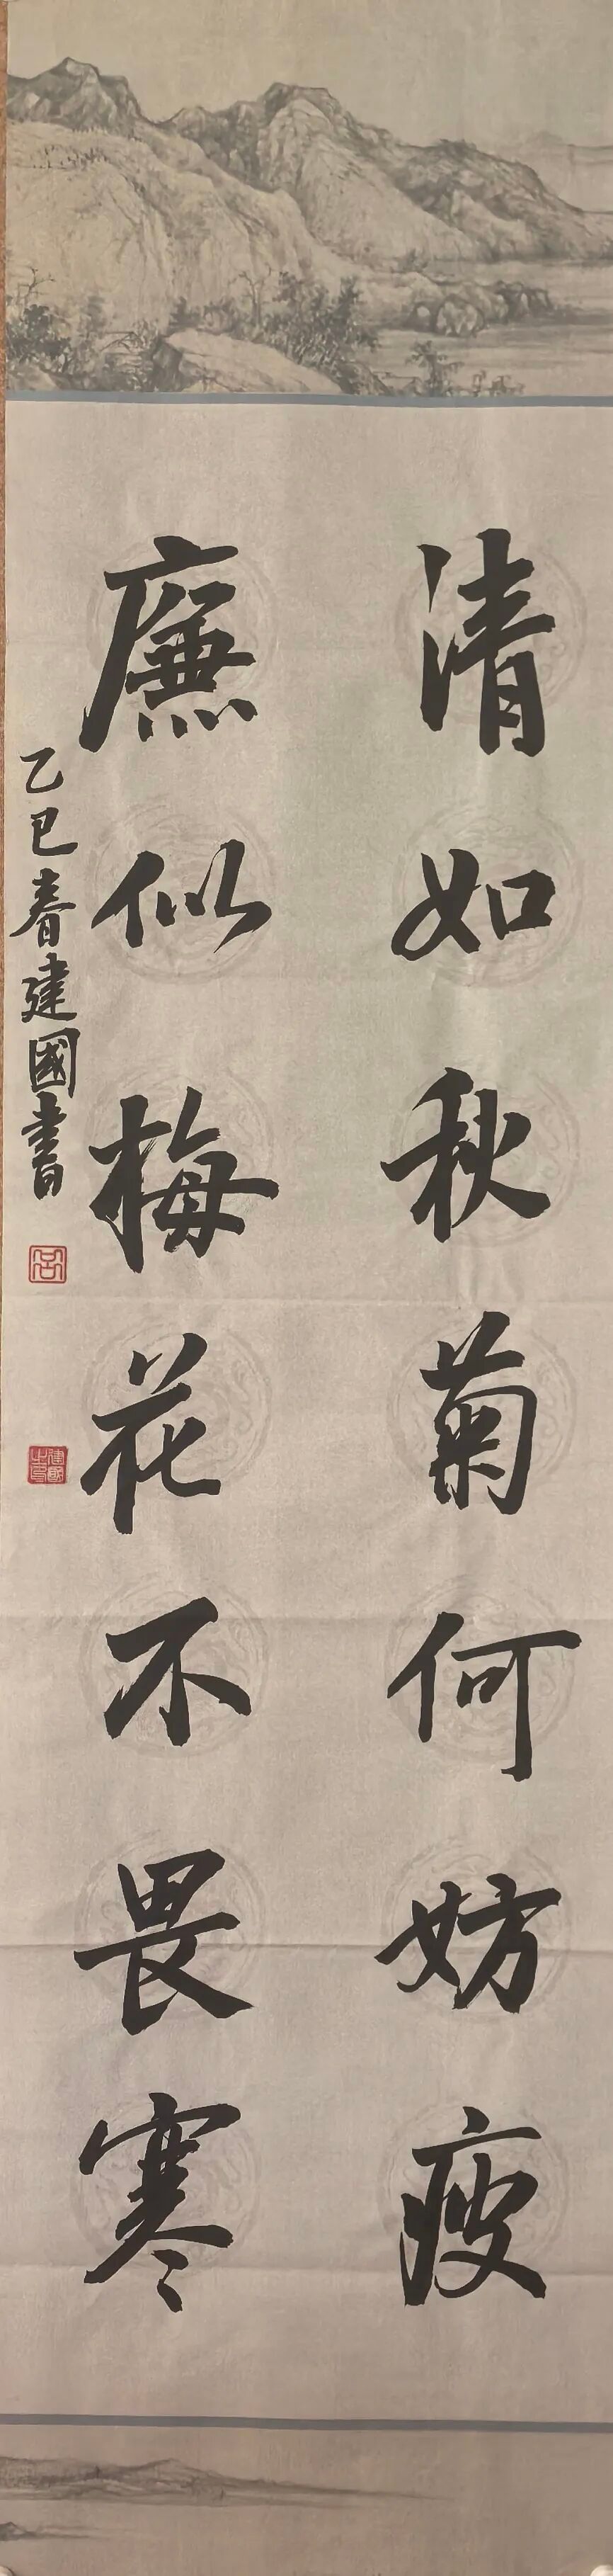 清如秋菊何妨瘦
廉似梅花不畏寒
乙巳春建國書
呂
建國之印